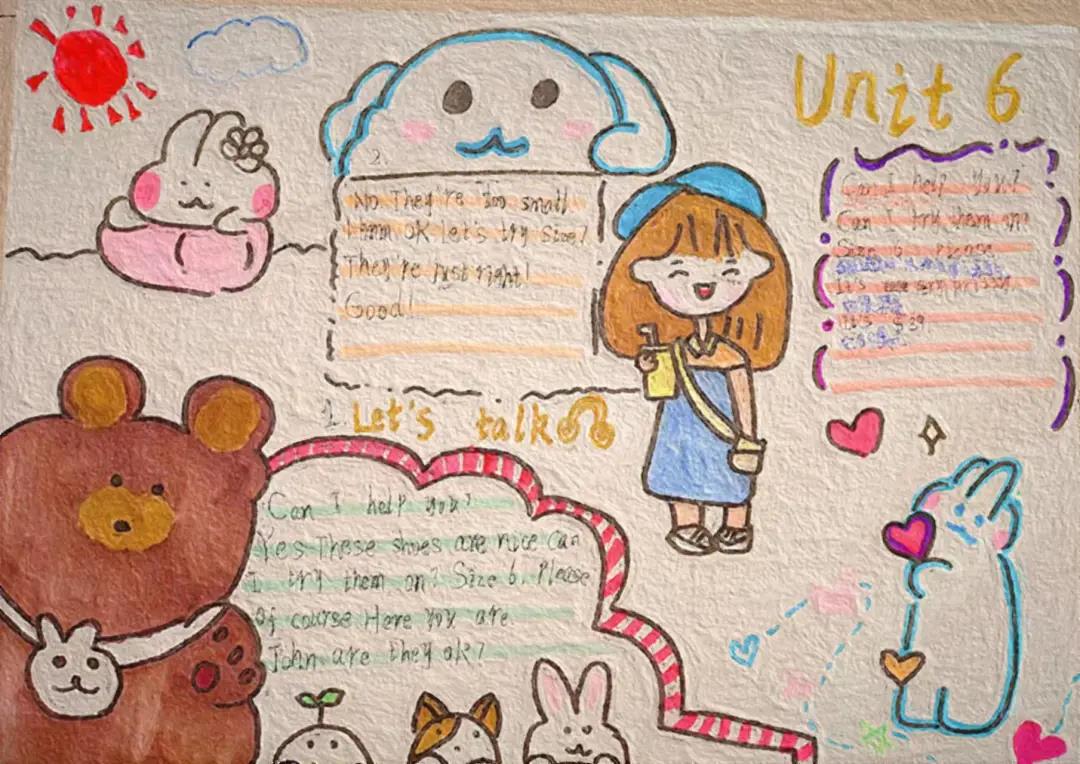 Unit 6
2.
No They're too small
Hmm ok Let's try Size 7
They're just right!
Good!
Can I help you?
Can I try them on?
Size 6. Please
It's
It's $39
1 Let's talk
Can I help you?
Yes These shoes are nice Can
I try them on? Size 6. Please
Of course Here you are
John are they ok?